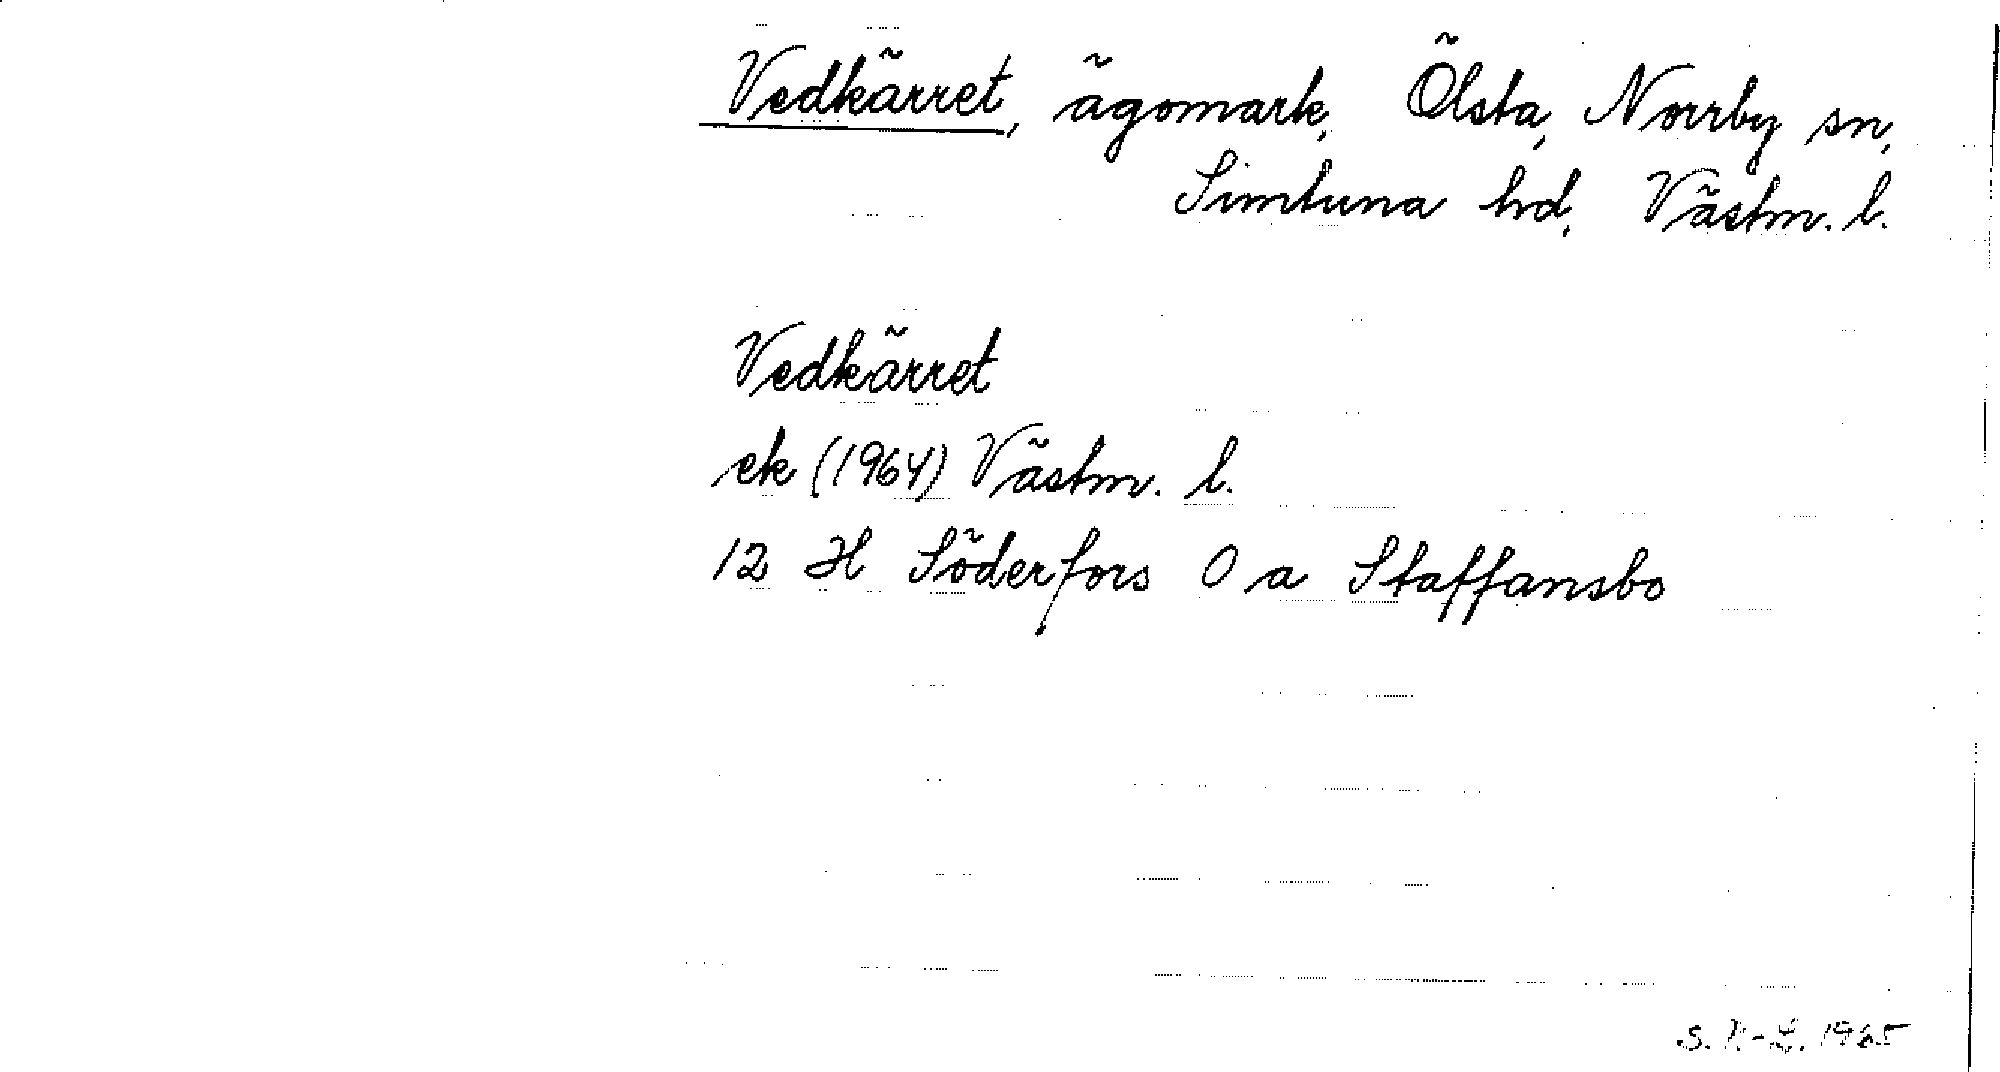 Vedkärret, ägomark, Ölsta, Norrby sn,
Simtuna hd, Västm. l.
Vedkärret
ek (1964) Västm. l.
12 H Söderfors O a Staffansbo
S. 1965